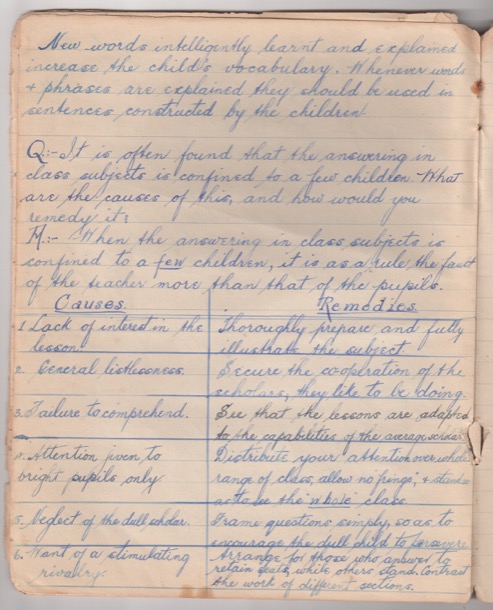 New words intelligently learnt and explained
increase the child's vocabulary. Whenever words
+ phrases are explained they should be used in
sentences constructed by the children
Q:- It is often found that the answering in
class subjects is confined to a few children. What
are the causes of this, and how would you
remedy it?
M:- When the answering in class subjects is
confined to a few children, it is as a rule the fault
of the teacher more than that of the pupils.
Causes. Remedies.
1. Lack of interest in the lesson.
Thoroughly prepare and fully
illustrate the subject
2. General listlessness.
Secure the co-operation of the
scholars, they like to be doing.
3. Failure to comprehend.
See that the lessons are adapted
to the capabilities of the average scholar.
4. Attention given to
bright pupils only
Distribute your attention over whole
range of class, allow no "fringe", + stand so
as to see the "whole" class
5. Neglect of the dull scholar.
Frame questions simply, so as to
encourage the dull child to persevere
6. Want of a stimulating
rivalry.
Arrange for those who answer to
retain seats, while others stand. Contrast
the work of different sections.